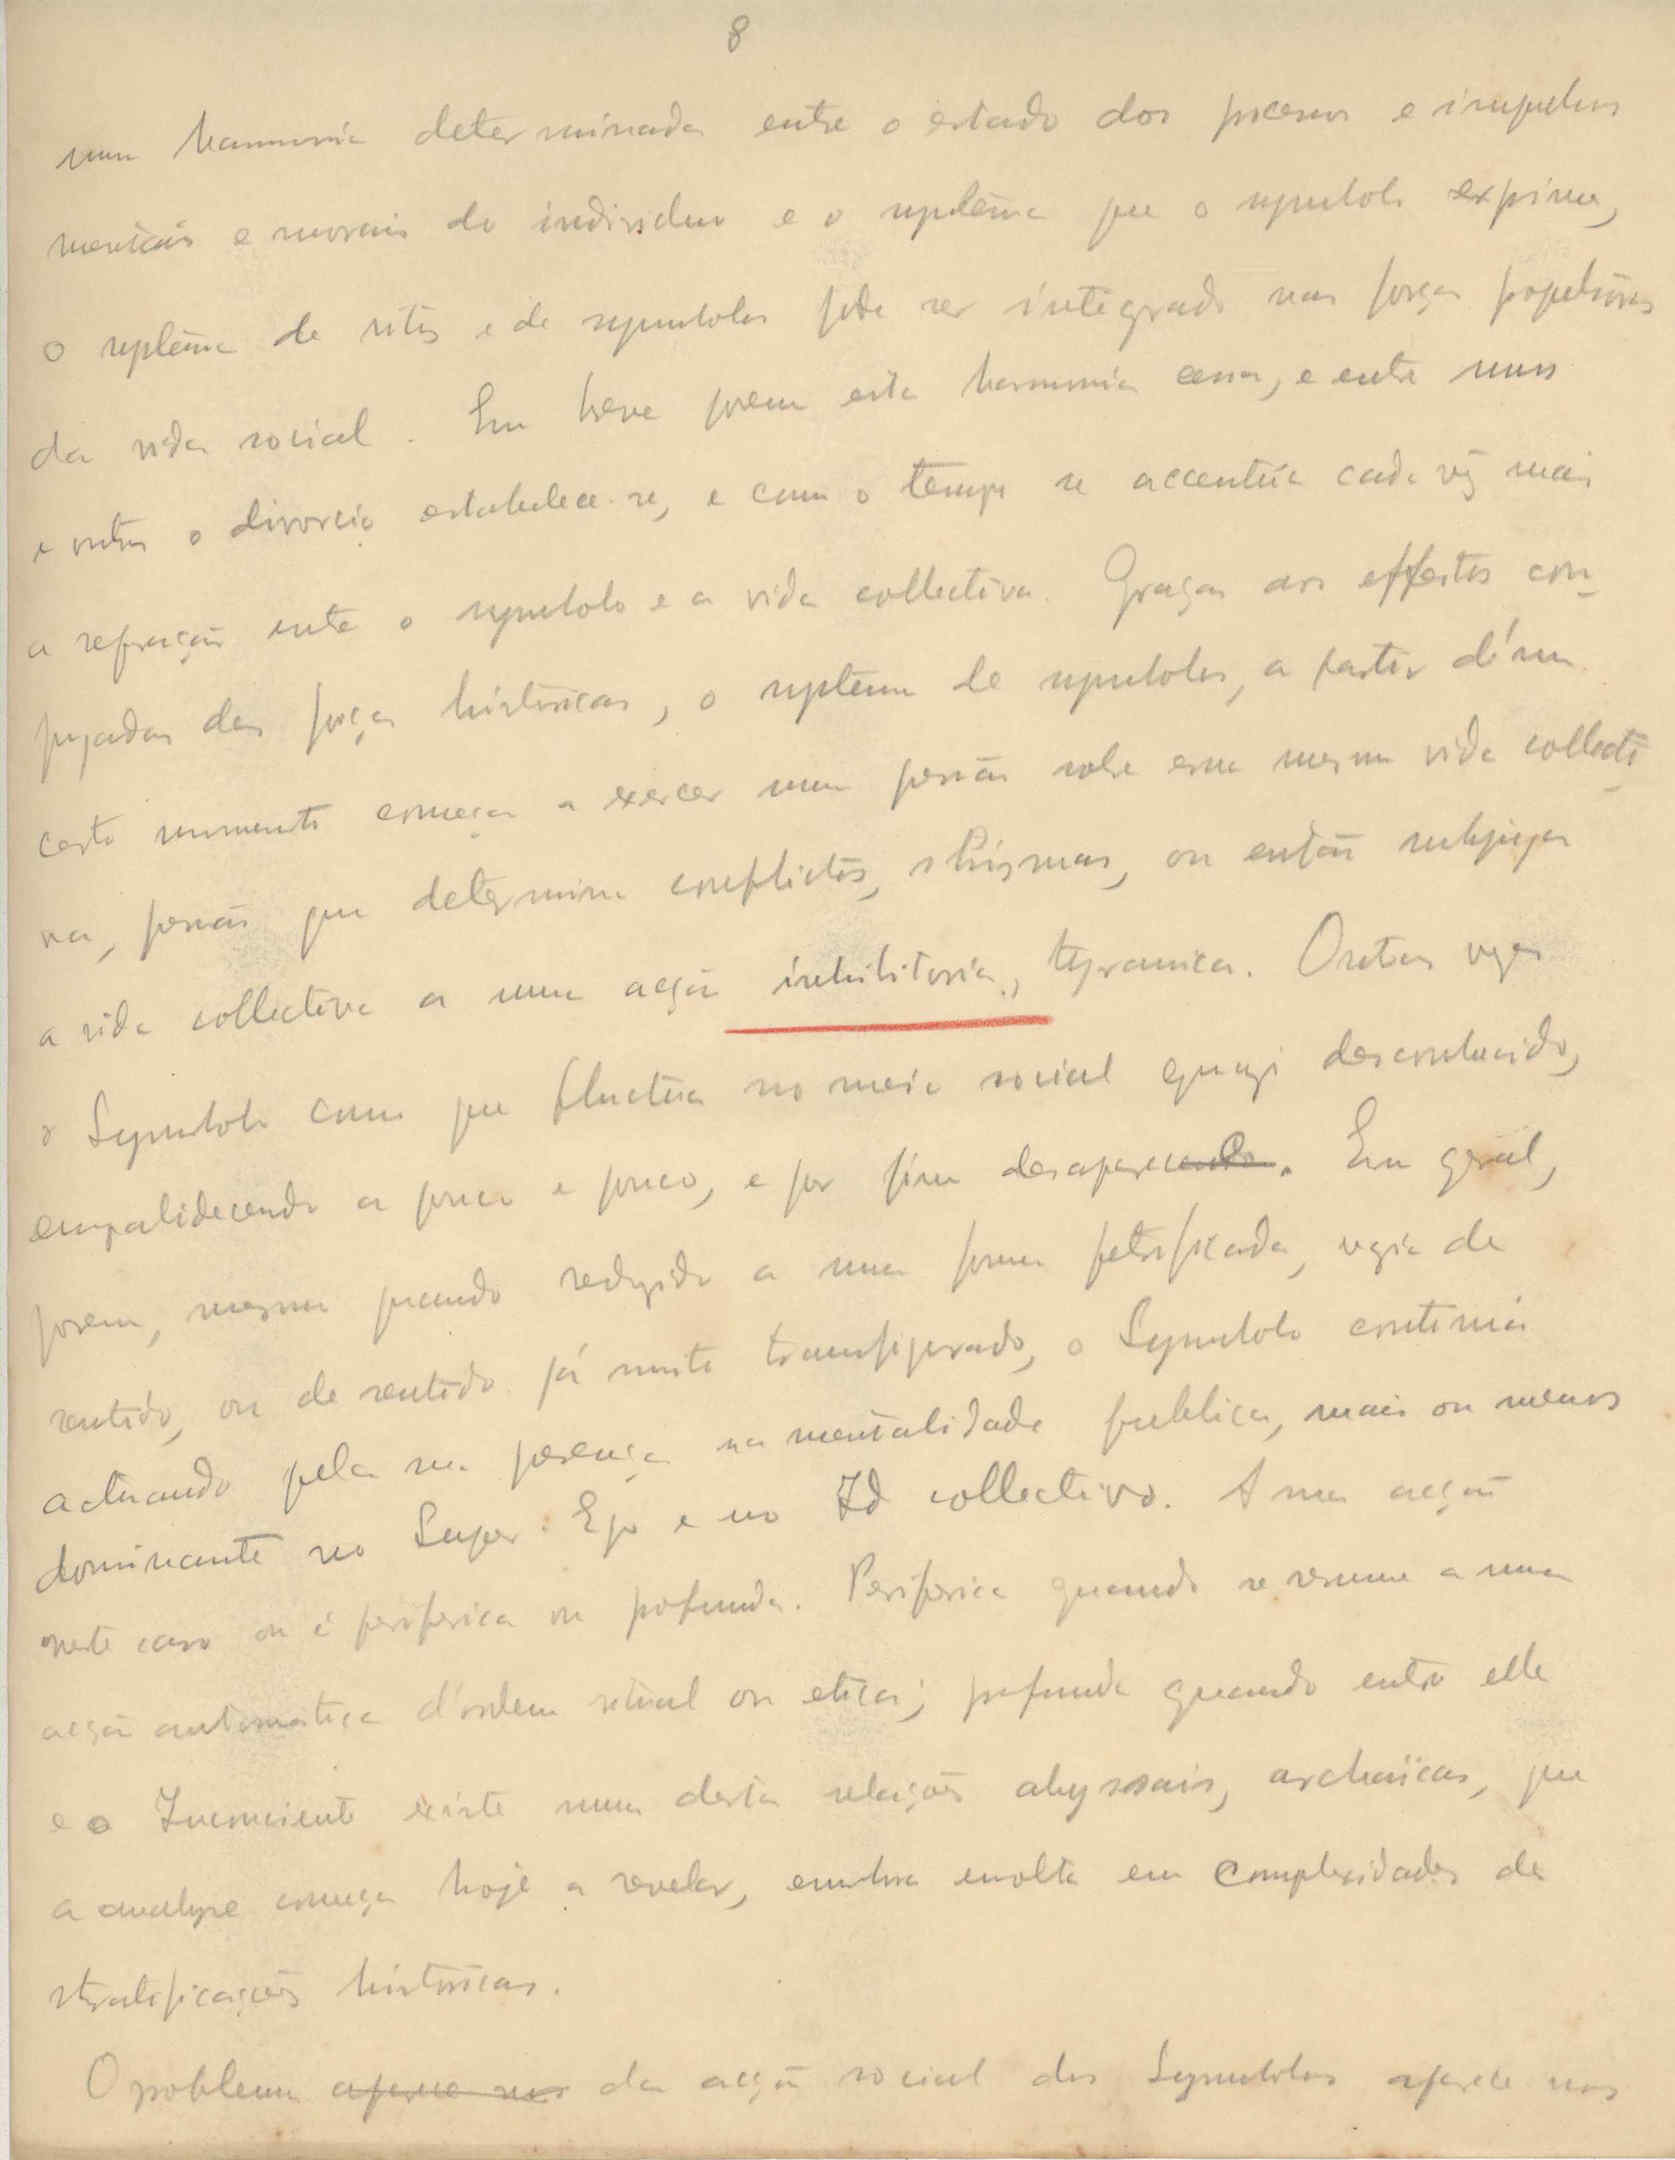 8
uma harmonia determinada entre o estado dos processos e impulsos
mentaes e moraes do individuo e o systema que o symbolo exprime,
o systema de ritos e de symbolos pode ser integrado nas forças propulsoras
da vida social. Em breve porem esta harmonia cessa, e entre uns
e outros o divorcio estabelece-se, e com o tempo se accentúa cada vez mais
a refracção entre o symbolo e a vida collectiva. Graças aos effeitos con-
jugados das forças históricas, o systema de symbolos, a partir d'um
certo momento começa a exercer uma pressão sobre essa mesma vida collecti-
va, pressão que determina conflictos, schismas, ou então subjuga
a vida collectiva a uma acção inhibitoria, tyrannica. Outras vezes
o Symbolo como que fluctúa no meio social quazi desconhecido,
empalidecendo a pouco e pouco, e por fim desaparecendo. Em geral,
porem, mesmo quando reduzido a uma forma petrificada, vazia de
sentido, ou de sentido já muito transfigurado, o Symbolo continúa
actuando pela sua presença na mentalidade publica, mais ou menos
dominante no Super-Ego e no Id collectivo. A sua acção
neste caso ou é periferica ou profunda. Periferica quando se resume a uma
acção automatica d'ordem ritual ou etica; profunda quando entre elle
e o Inconsciente existe uma destas relações abyssais, archaïcas, que
a analyse começa hoje a revelar, embora envolta em complexidades de
stratificações históricas.
O problema aparece nos da acção social dos Symbolos aparece nos